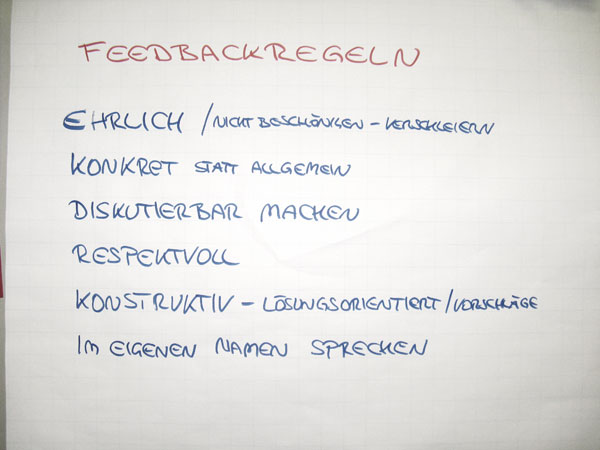 FEEDBACKREGELN
EHRLICH / NICHT BESCHÖNIGEN - VERSCHLEIERN
KONKRET STATT ALLGEMEIN
DISKUTIERBAR MACHEN
RESPEKTVOLL
KONSTRUKTIV - LÖSUNGSORIENTIERT / VORSCHLÄGE
IM EIGENEN NAMEN SPRECHEN